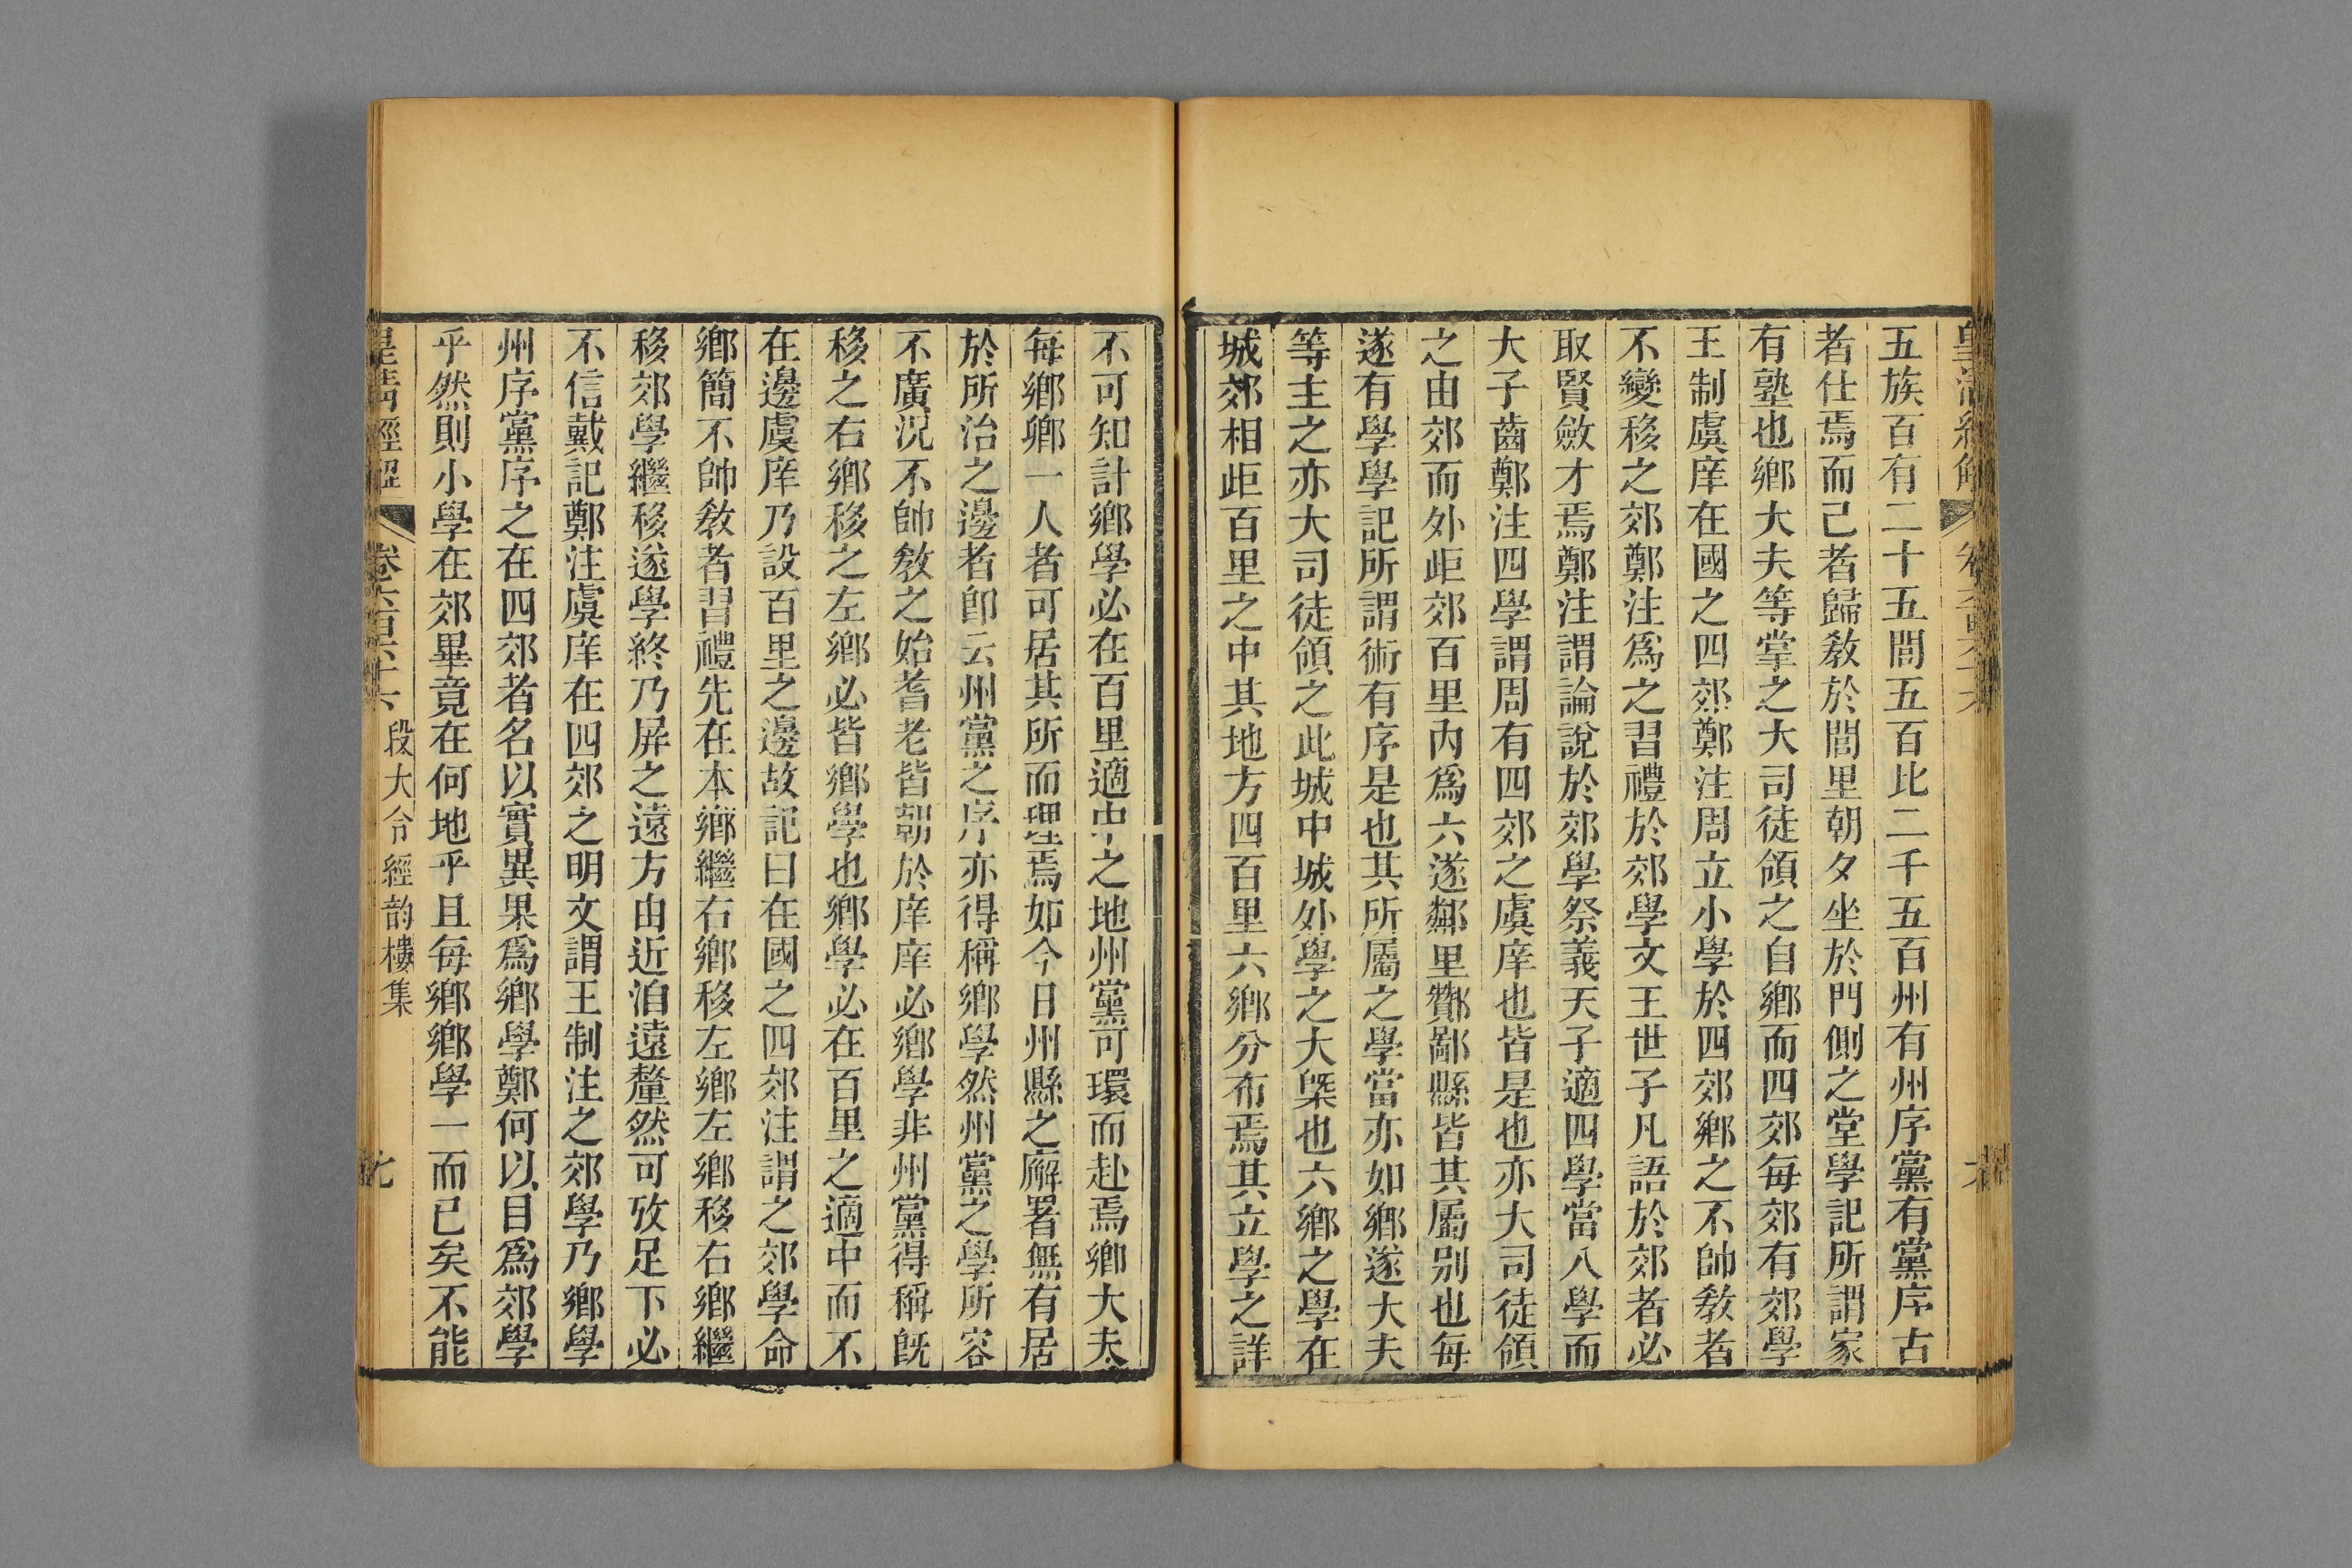 五族百有二十五閭五百比二千五百州有州序黨有黨序古
者仕焉而已者歸敎於閭里朝夕坐於門側之堂學記所謂家
有塾也鄉大夫等掌之大司徒領之自鄉而四郊每郊有郊學
王制虞庠在國之四郊鄭注周立小學於四郊鄉之不帥敎者
不變移之郊鄭注爲之習禮於郊學文王世子凡語於郊者必
取賢斂才焉鄭注謂論說於郊學祭義天子適四學當入學而
大子齒鄭注四學謂周有四郊之虞庠也皆是也亦大司徒領
之由郊而外距郊百里內爲六遂鄰里酇鄙縣皆其屬別也每
遂有學學記所謂術有序是也其所屬之學當亦如鄉遂大夫
等主之亦大司徒領之此城中城外學之大槩也六鄉之學在
城郊相距百里之中其地方四百里六鄉分布焉其立學之詳
不可知計鄉學必在百里適中之地州黨可環而赴焉鄉大夫
每鄉鄉一人者可居其所而理焉如今日州縣之廨署無有居
於所治之邊者卽云州黨之序亦得稱鄉學然州黨之學所容
不廣況不帥敎之始耆老皆朝於庠庠必鄉學非州黨得稱旣
移之右鄉移之左鄉必皆鄉學也鄉學必在百里之適中而不
在邊虞庠乃設百里之邊故記曰在國之四郊注謂之郊學命
鄉簡不帥敎者習禮先在本鄉繼右鄉移左鄉左鄉移右鄉繼
移郊學繼移遂學終乃屏之遠方由近洎遠釐然可攷足下必
不信戴記鄭注虞庠在四郊之明文謂王制注之郊學乃鄉學
州序黨序之在四郊者名以實異果爲鄉學鄭何以目爲郊學
乎然則小學在郊畢竟在何地乎且每鄉鄉學一而已矣不能
皇淸經解 卷六百六十六 段大令經韵樓集 七